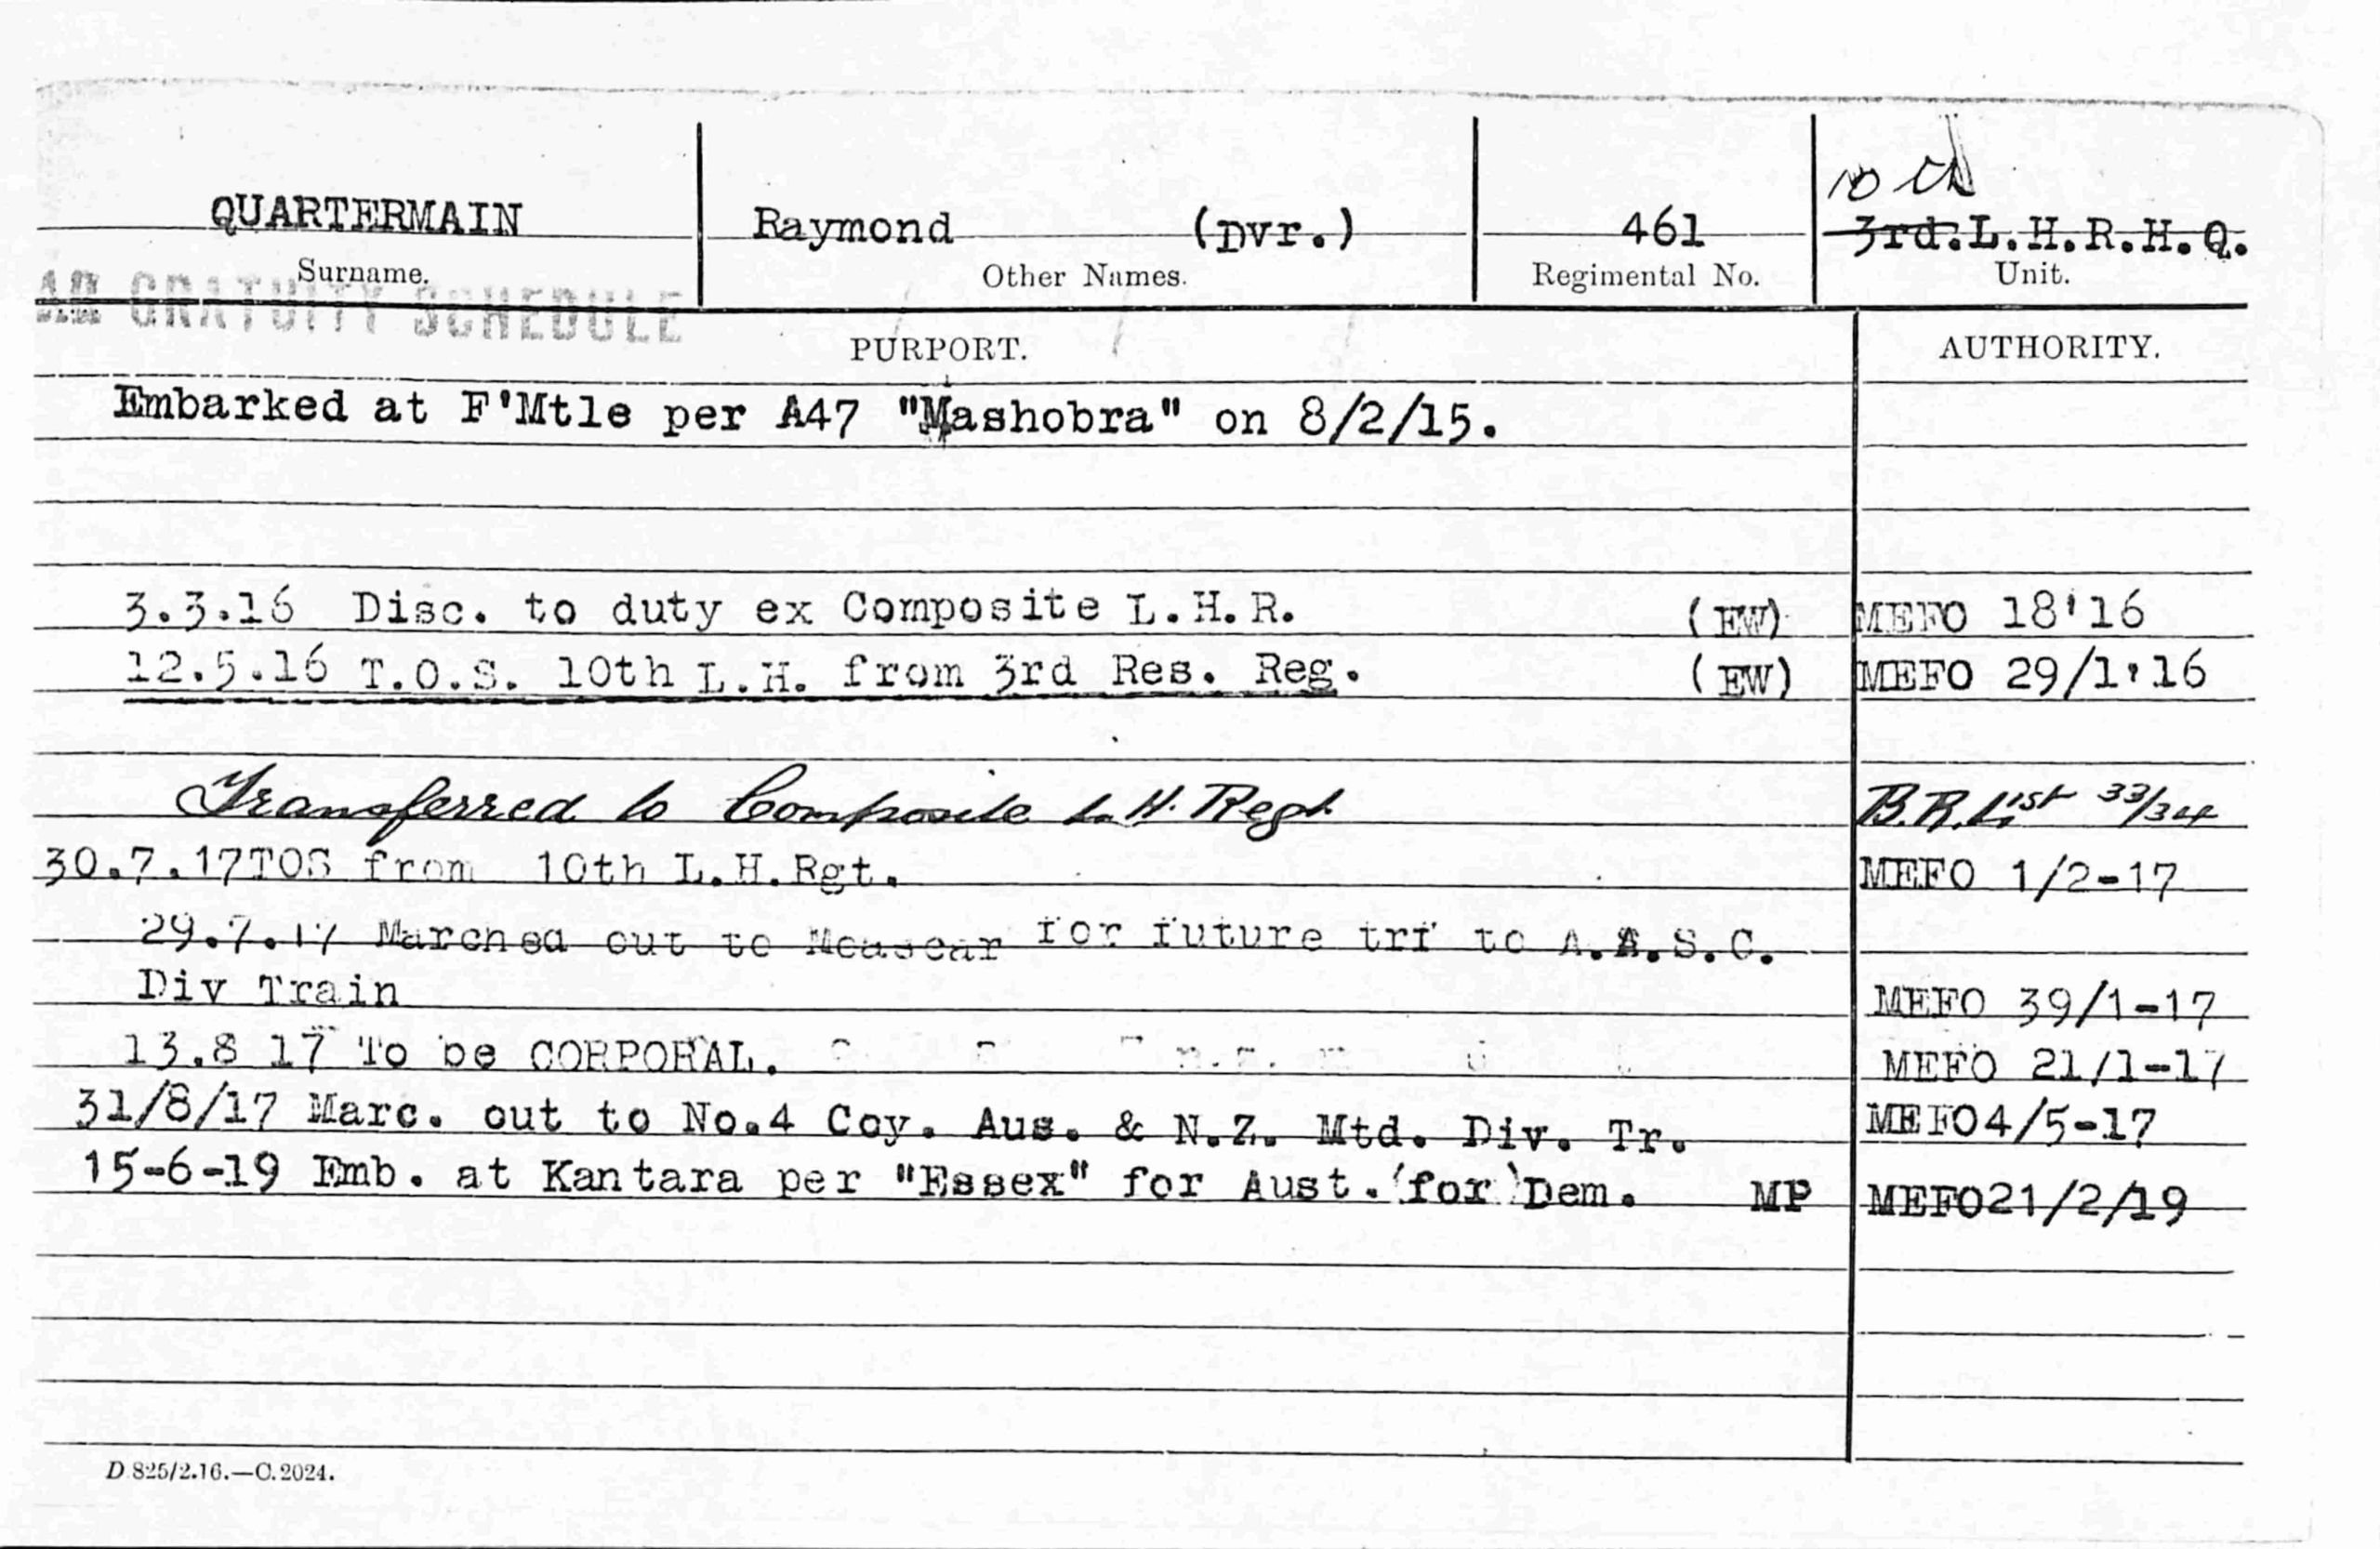 10th
QUARTERMAIN Raymond (Dvr.) 461 3rd.L.H.R.H.Q.
Surname. Other Names. Regimental No. Unit.
GRATUITY SCHEDULE
PURPORT. AUTHORITY.
Embarked at F'Mtle per A47 "Mashobra" on 8/2/15.
3.3.16 Disc. to duty ex Composite L.H.R. (EW) MEFO 18'16
12.5.16 T.O.S. 10th L.H. from 3rd Res. Reg. (EW) MEFO 29/1'16
Transferred to Composite L.H. Regt. B.R. List 33/34
30.7.17TOS from 10th L.H.Rgt. MEFO 1/2-17
29.7.17 Marched out to for future trf to A.A.S.C.
Div Train MEFO 39/1-17
13.8 17 To be CORPORAL. MEFO 21/1-17
31/8/17 Marc. out to No.4 Coy. Aus. & N.Z. Mtd. Div. Tr. MEFO4/5-17
15-6-19 Emb. at Kantara per "Essex" for Aust. for Dem. MP MEFO21/2/19
D 825/2.16.—C.2024.